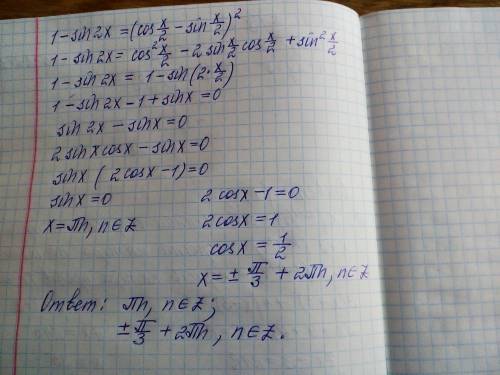 1 - sin 2x = (cos x/2 - sin x/2)²
1 - sin 2x = cos² x/2 - 2 sin x/2 cos x/2 + sin² x/2
1 - sin 2x = 1 - sin (2 · x/2)
1 - sin 2x - 1 + sin x = 0
sin 2x - sin x = 0
2 sin x cos x - sin x = 0
sin x (2 cos x - 1) = 0
sin x = 0
x = πn, n ∈ Z
2 cos x - 1 = 0
2 cos x = 1
cos x = 1/2
x = ± π/3 + 2πn, n ∈ Z
Ответ: πn, n ∈ Z;
± π/3 + 2πn, n ∈ Z.